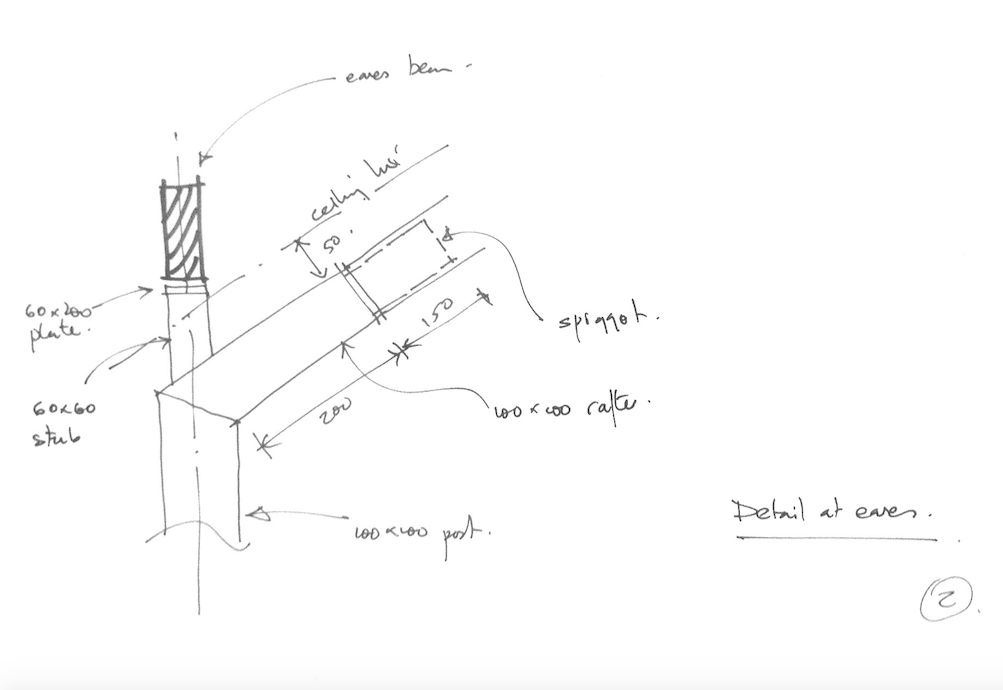 eaves beam.
ceiling line
50.
60x200
plate.
spiggot.
150
60x60
stub
200
100x100 rafter.
100x100 post.
Detail at eaves.
2.